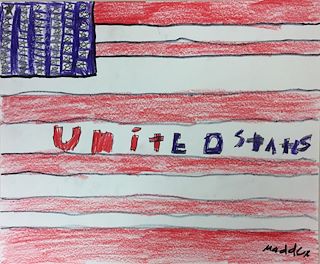 UNitED StAtES
maddox